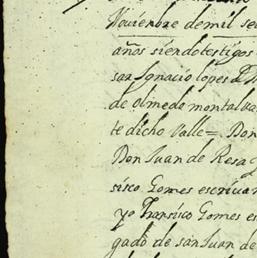 Noviembre de mil se
años siendo testigos
sar Ignacio lopes
de olmedo montalva
te dicho Valle = Don
Don Juan de Resa
sisco Gomes escrivan
yo Fransisco Gomes es
gado de san Juan de